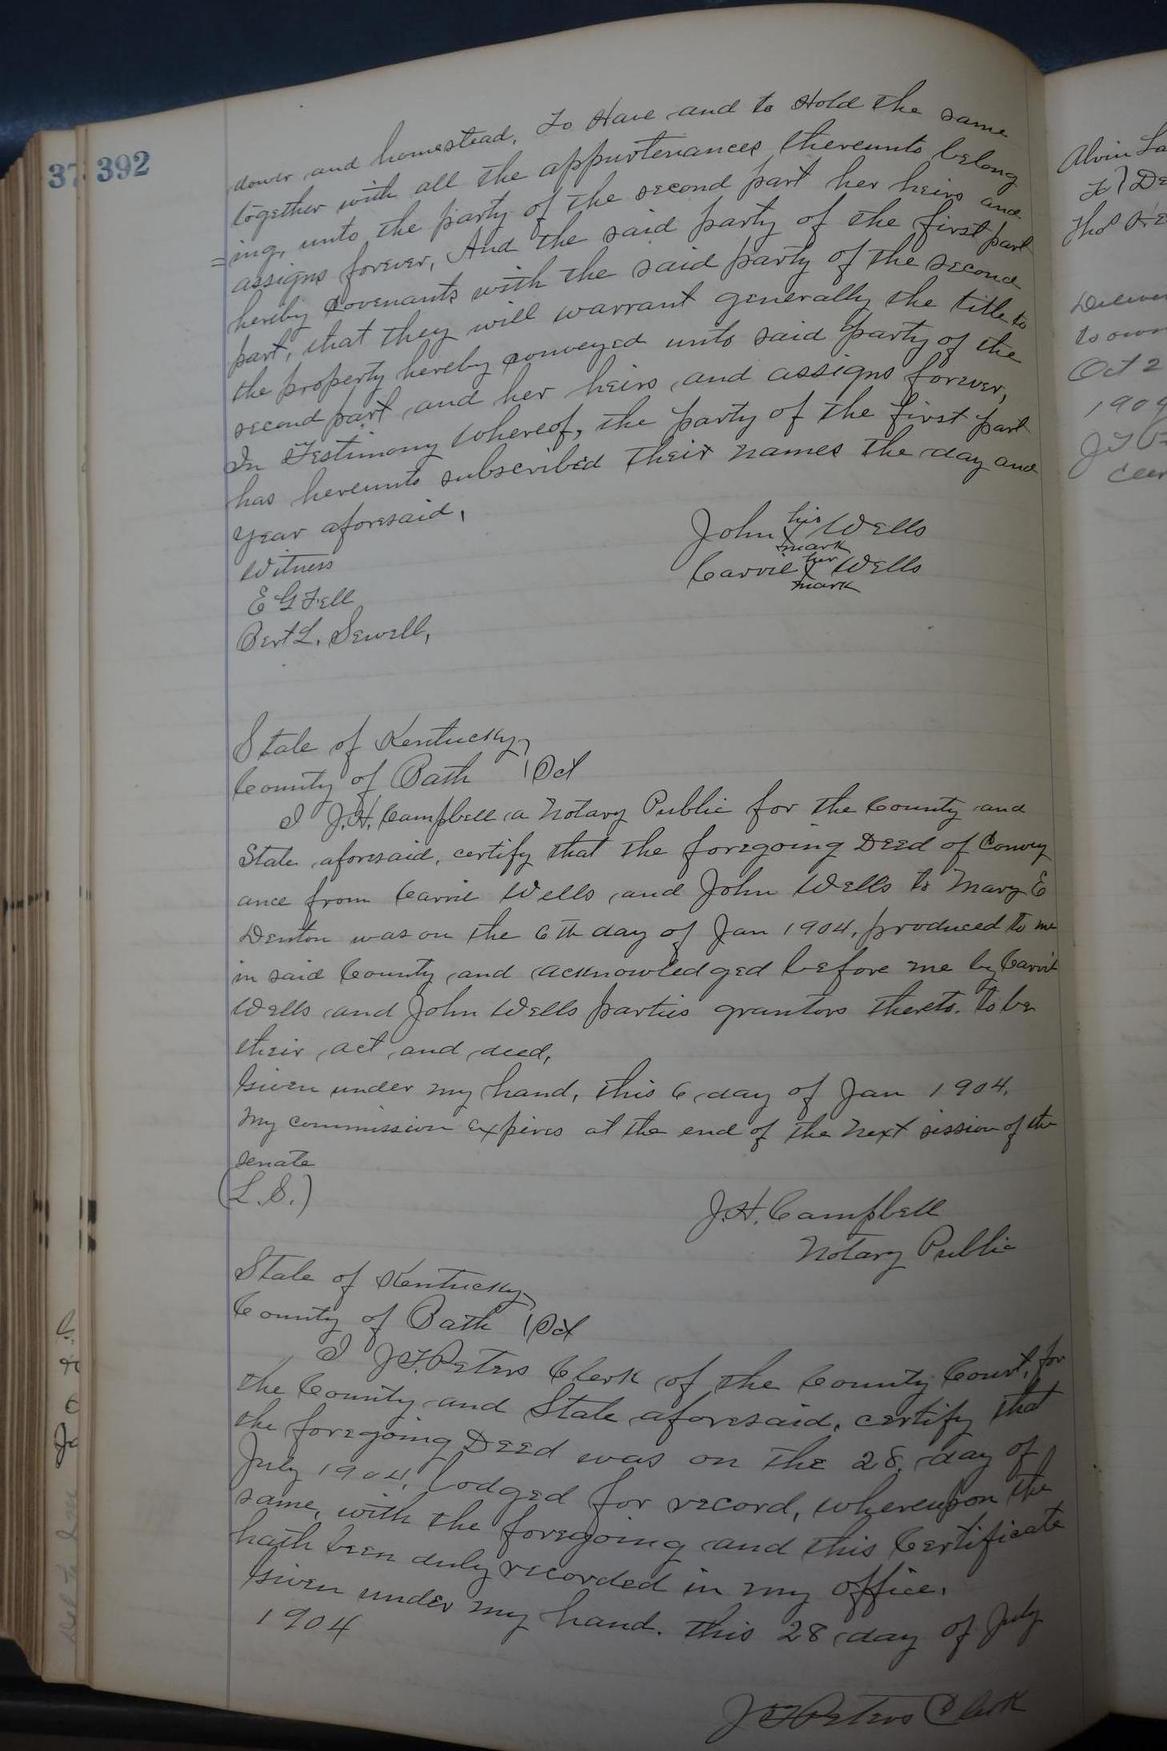 37 392
dower and homestead, To Have and to Hold the same
together with all the appurtenances thereunto belong
=ing, unto the party of the second part her heirs and
assigns forever, And the said party of the first part
hereby covenants with the said party of the second
part, that they will warrant generally the title to
the property hereby conveyed unto said party of the
second part and her heirs and assigns forever,
In Testimony Whereof, the party of the first part
has hereunto subscribed their names the day and
Year aforesaid,
Witness
E G Fell
Bert L. Sewell,
John his Wells
X mark
Carrie her Wells
X mark
State of Kentucky,
County of Bath } Sct
I J.H. Campbell a Notary Public for the County and
State aforesaid, certify that the foregoing Deed of Convey
ance from Carrie Wells and John Wells to Mary E
Denton was on the 6th day of Jan 1904, produced to me
in said County and acknowledged before me by Carrie
Wells and John Wells parties grantors thereto. to be
their act and deed,
Given under my hand, this 6 day of Jan 1904.
My commission expires at the end of the next session of the
senate
(L.S.)
J.H. Campbell
Notary Public
State of Kentucky,
County of Bath } Sct
I J.T. Peters Clerk of the County Court, for
the County and State aforesaid, certify that
the foregoing Deed was on the 28, day of
July 1904, lodged for record, whereupon the
same, with the foregoing and this Certificate
hath been duly recorded in my office.
Given under my hand. this 28 day of July
1904
J T Peters Clerk
Alvin
to } De
Thos
Deliver
to own
Oct 2
1909